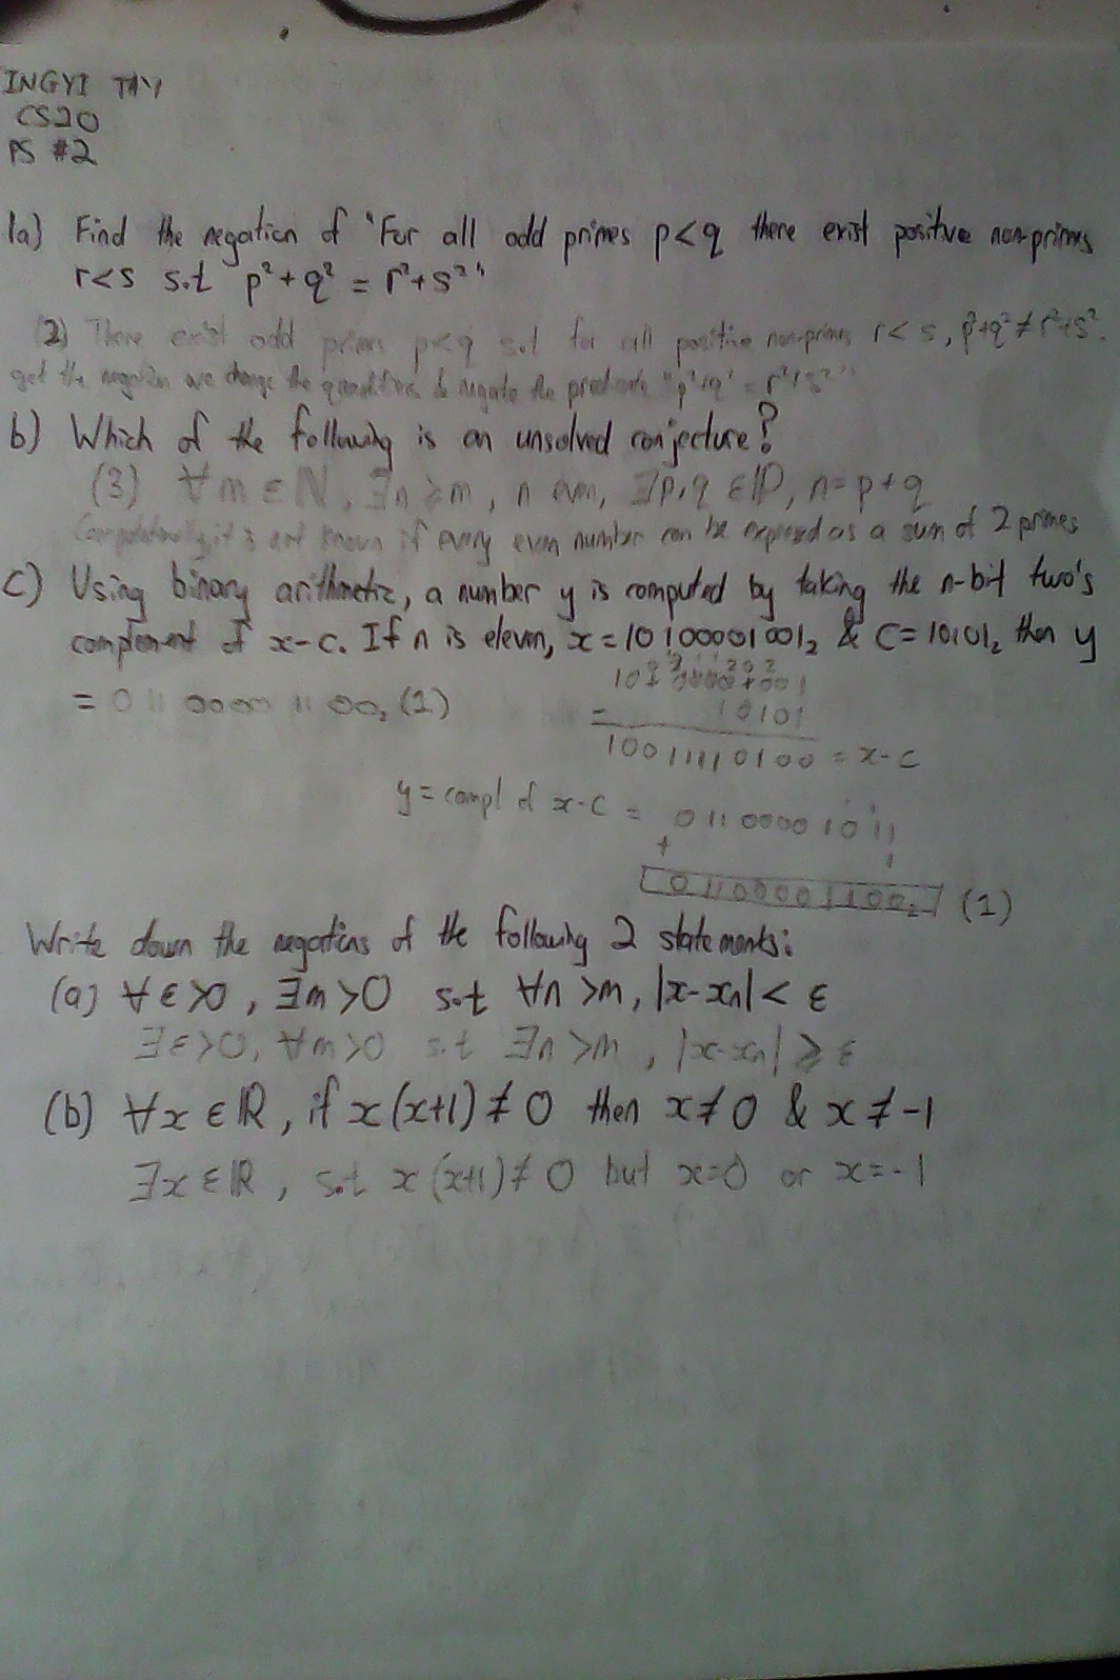 INGYI TAY
CS20
PS #2
1a) Find the negation of "For all odd primes p<q there exist positive non-primes
r<s s.t p²+q² = r²+s²"
(2) There exist odd primes p<q s.t for all positive non-primes r<s, p²+q² ≠ r²+s².
get the negation we change the quantifiers & negate the predicate "p²+q² = r²+s²"
b) Which of the following is an unsolved conjecture?
(3) ∀m∈ℕ, ∃n≥m, n even, ∃p,q∈ℙ, n=p+q
it is not known if every even number can be expressed as a sum of 2 primes
c) Using binary arithmetic, a number y is computed by taking the n-bit two's
complement of x-c. If n is eleven, x=10100001001₂ & c=10101₂ then y
= 01100001100₂ (1)
- 10101
10011110100 = x-c
y = compl of x-c = 01100001011
+ 1
01100001100₂ (1)
Write down the negations of the following 2 statements:
(a) ∀ε>0, ∃m>0 s.t ∀n>m, |x-xₙ|<ε
∃ε>0, ∀m>0 s.t ∃n>m, |x-xₙ|⩾ε
(b) ∀x∈ℝ, if x(x+1)≠0 then x≠0 & x≠-1
∃x∈ℝ, s.t x(x+1)≠0 but x=0 or x=-1